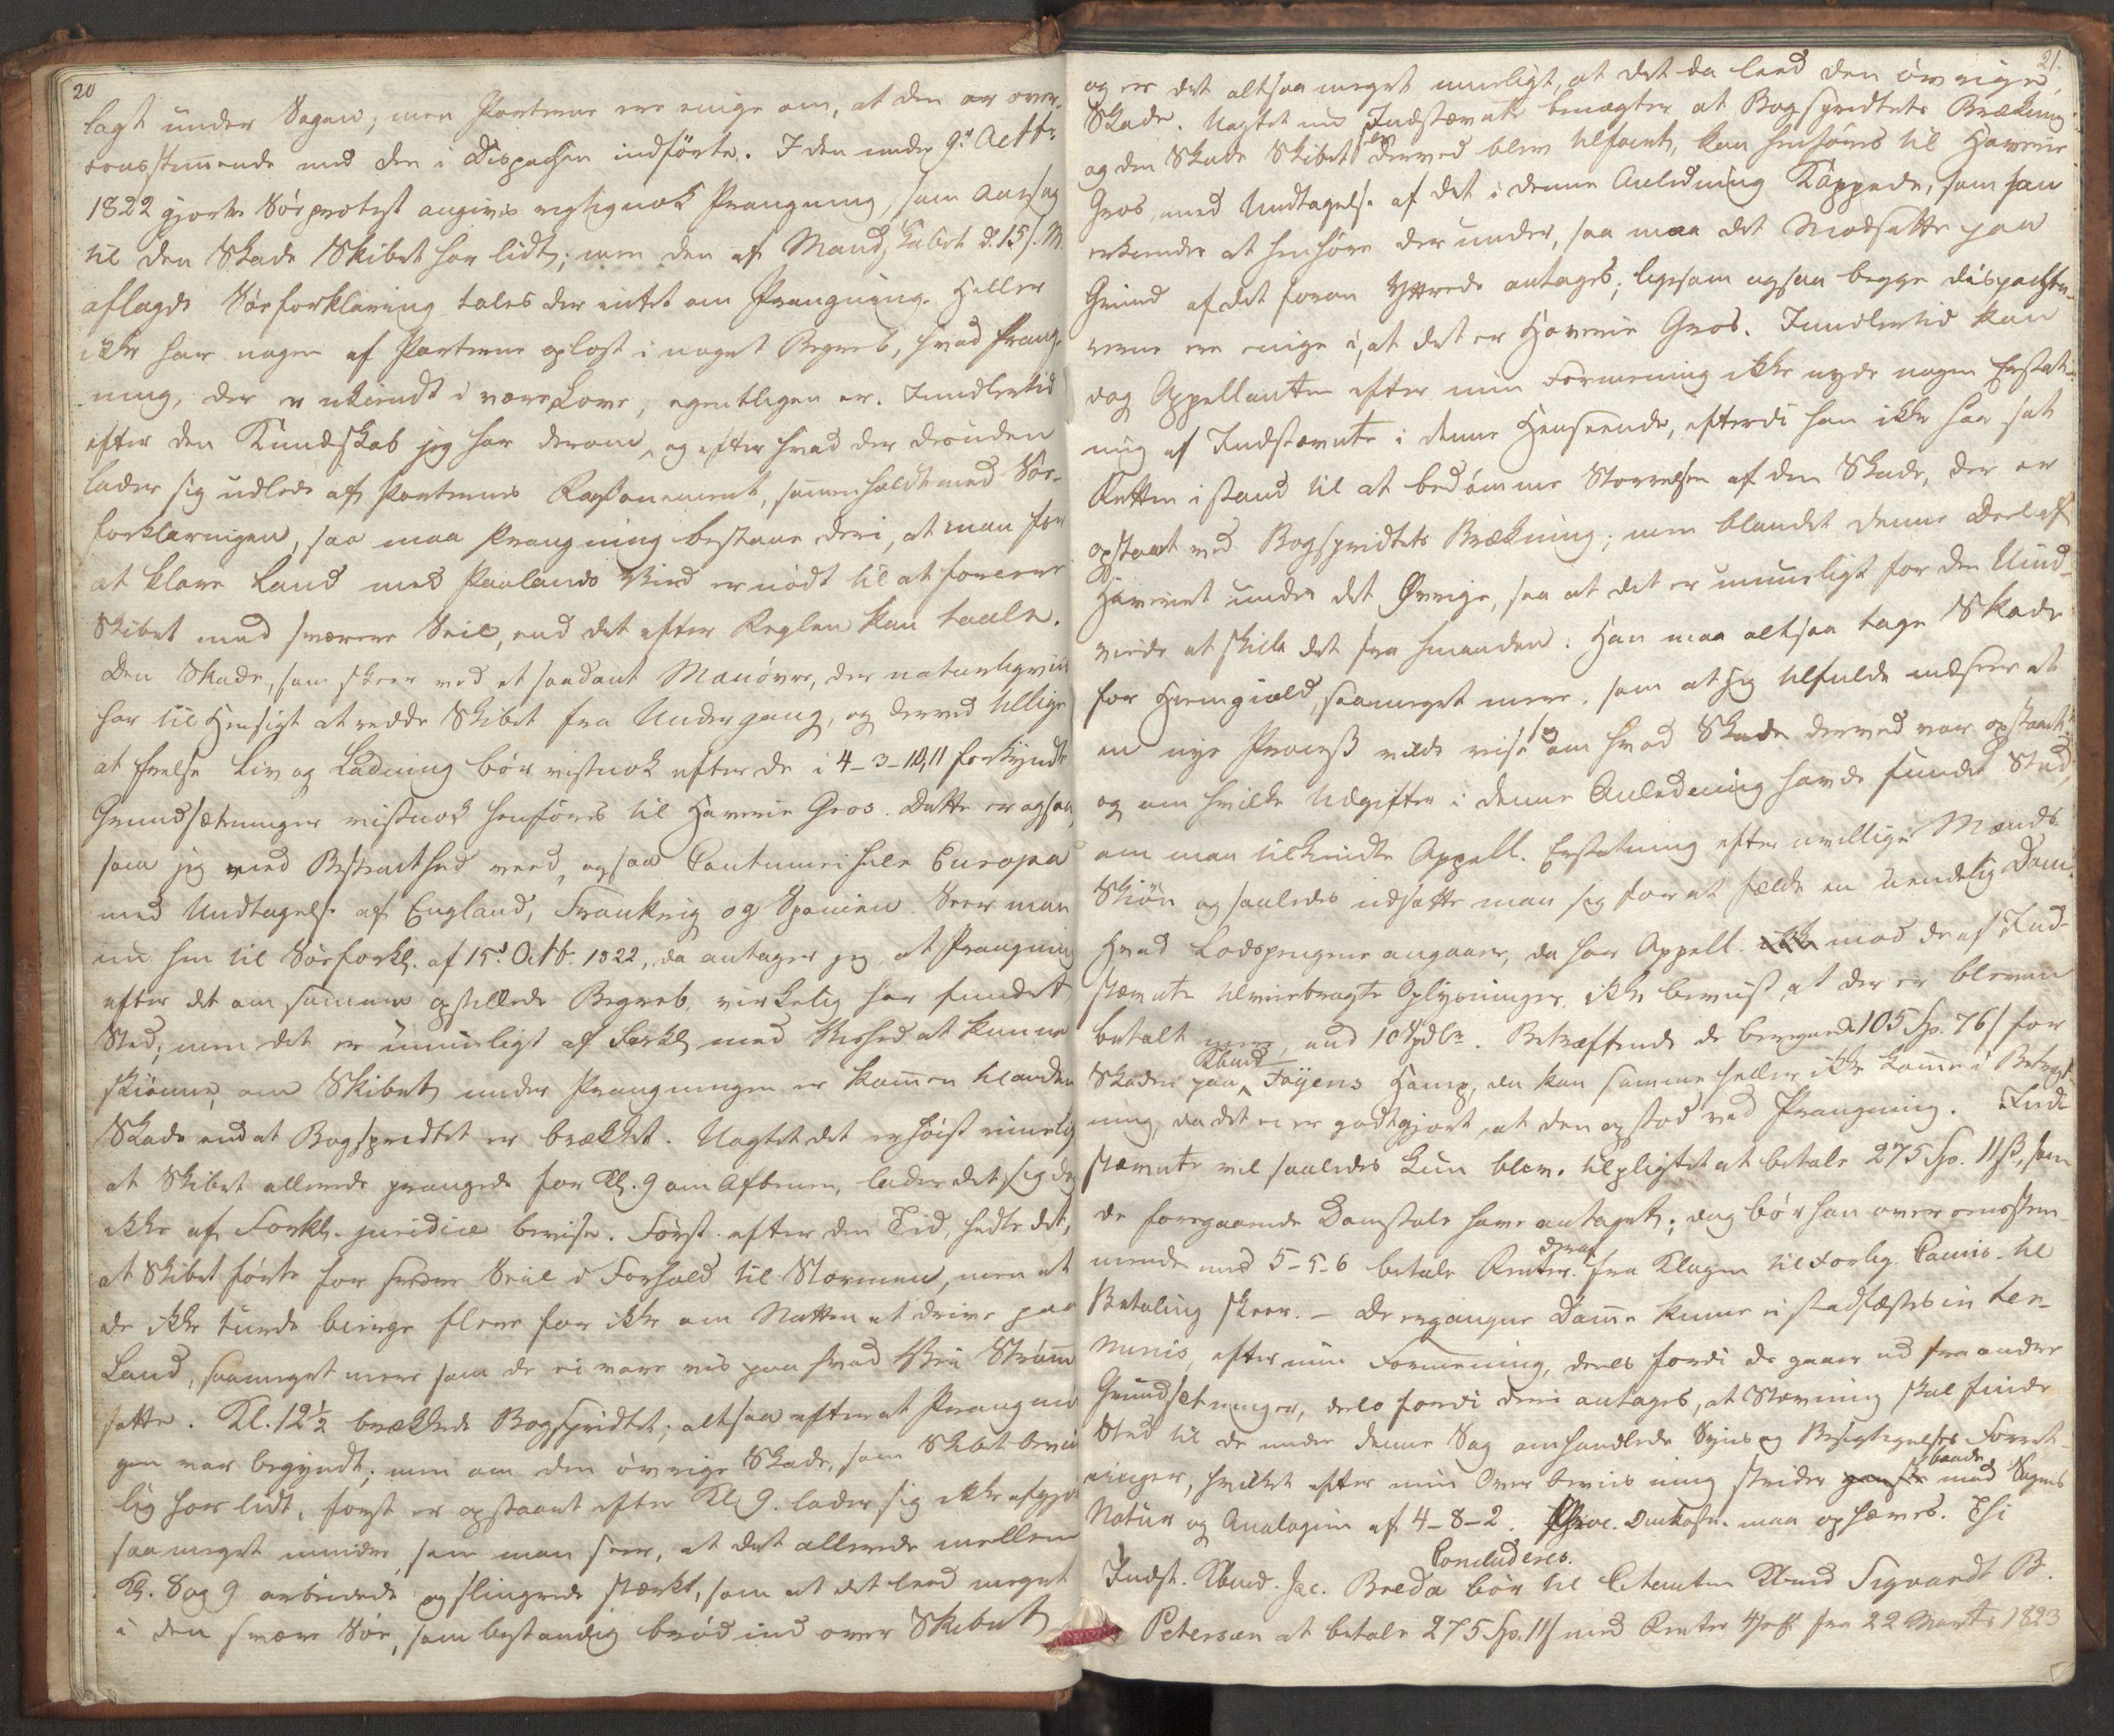 20
lagt under Sagen; men Parterne ere enige om, at den er over-
eensstemmende med den i Dispachen indförte. I den under 9de Octbr
1822 gjorte Söeprotest angives rigtignok Prangning, som Aarsag
til den Skade Skibet har lidt; men den af Mandskabet d. 15 s. M.
aflagde Söeforklaring tales der intet om Prangning. Heller
ikke har nogen af Parterne oplöst i noget Begreb, hvad Prang-
ning, der er ukiendt i vore Love, egentligen er. Imidlertid
efter den Kundskab jeg har derom, og efter hvad der desuden
lader sig udlede af Parternes Raisonement, sammenholdt med Söe-
forklaringen, saa maa Prangning bestaae deri, at man for
at klare Land med Paalands Vind er nödt til at forcere
Skibet med sværere Seil, end det efter Reglen kan taale.
Den Skade, som skeer ved et saadant Manöver, der naturligviis
har til Hensigt at redde Skibet fra Undergang, og derved tillige
at frelse Liv og Ladning bör vistnok efter de i 4-3-10, 11 forkyndte
Grundsætninger vistnok henföres til Haverie Gros. Dette er ogsaa,
som jeg med Bestemthed veed, ogsaa Coutume i hele Europa
med Undtagelse af England, Frankrig og Spanien. Seer man
nu hen til Söeforkl. af 15d Octb. 1822, da antager jeg, at Prangning
efter det om samme opstillede Begreb, virkelig har fundet
Sted; men det er umueligt af Forkl. med Vished at kunne
skiönne, om Skibet under Prangningen er kommen til anden
Skade end at Bogspridtet er brækket. Uagtet det er höist rimelig
at Skibet allerede prangede for Kl. 9 om Aftenen, lader det sig dog
ikke af Forkl. juridice bevise. Först efter den Tid, hedte det,
at Skibet förte for svære Seil i Forhold til Stormen, men at
de ikke turde bierge flere for ikke om Natten at drive paa
Land, saameget mere som de ei vare vis paa hvad Vei Strömmen
satte. Kl. 12½ brækkede Bogspridtet; altsaa efter at Prangnin-
gen var begyndt; men om den övrige Skade, som Skibet bevis-
lig har lidt, först er opstaaet efter Kl. 9. lader sig ikke afgjöre
saameget mindre, som man seer, at det allerede mellem
Kl. 8 og 9 arbeidede og slingrede stærkt, som at det leed meget
i den svære Söe, som bestandig bröd ind over Skibet
21.
og er det altsaa meget mueligt, at det da leed den övrige
Skade. Uagtet nu Indstævnte benægter at Bogspridtets Brækning
og den Skade Skibet derved blev tilföiet, kan henföres til Haverie
Gros, med Undtagelse af det i denne Anledning Kappede, som han
erkiender at henhöre derunder, saa maa det Modsatte paa
Grund af det foran Yttrede antages; ligesom ogsaa begge Dispacheu-
rerne ere enige i, at det er Haverie Gros. Imidlertid kan
dog Appellanten efter min Formening ikke nyde nogen Erstat-
ning af Indstævnte i denne Henseende, efterdi han ikke har sat
Retten istand til at bedömme Störrelsen af den Skade, der er
opstaaet ved Bogspridtets Brækning; men blandet denne Deel af
Haveriet under det Övrige, saa at det er umueligt for den Uind-
viede at skille det fra hinanden. Han maa altsaa tage Skade
for Hiemgiæld, saameget mere, som at jeg tilfulde indseer at
en nye Proces vilde reise sig om hvad Skade derved var opstaaet,
og om hvilke Udgifter i denne Anledning havde fundet Sted,
om man tilkiendte Appell. Erstatning efter uvillige Mænds
Skiön og saaledes udsatte man sig for at fælde en uendelig Dom.
Hvad Lodspengene angaaer, da har Appell. mod de af Ind-
stævnte tilveiebragte Oplysninger, ikke beviist, at der er bleven
betalt mere, end 10 Spdlr. Betræffende de beregnede 105 Sp. 76 s for
Skaden paa Kbmd Föyens Hamp, da kan samme heller ikke komme i Betragt-
ning, da det ei er godtgjort, at den opstod ved Prangning. Ind-
stævnte vil saaledes kun blive tilpligtet at betale 275 Sp. 11 ß, som
de foregaaende Domstole have antaget; dog bör han overeenstem-
mende med 5-5-6 betale Renter deraf fra Klagen til Forlig. Comis. til
Betaling skeer. – De ergangne Domme kunne ei stadfæstes in ter-
minis, efter min Formening, deels fordi de gaaer ud fra andre
Grundsætninger, deels fordi deri antages, at Stævning skal finde
Sted til de under denne Sag omhandlede Syns og Besigtigelses Forret-
ninger, hvilket efter min Overbeviisning strider baade mod Sagens
Natur og Analogien af 4-8-2. Proc. Omkostn. maa ophæves. Thi
Concluderes.
Indst. Kbmd. Jac. Breda bör til Citanten Kbmd Sigvardt B.
Petersen at betale 275 Sp. 11 s med Renter 4 pCt fra 22 Marts 1823